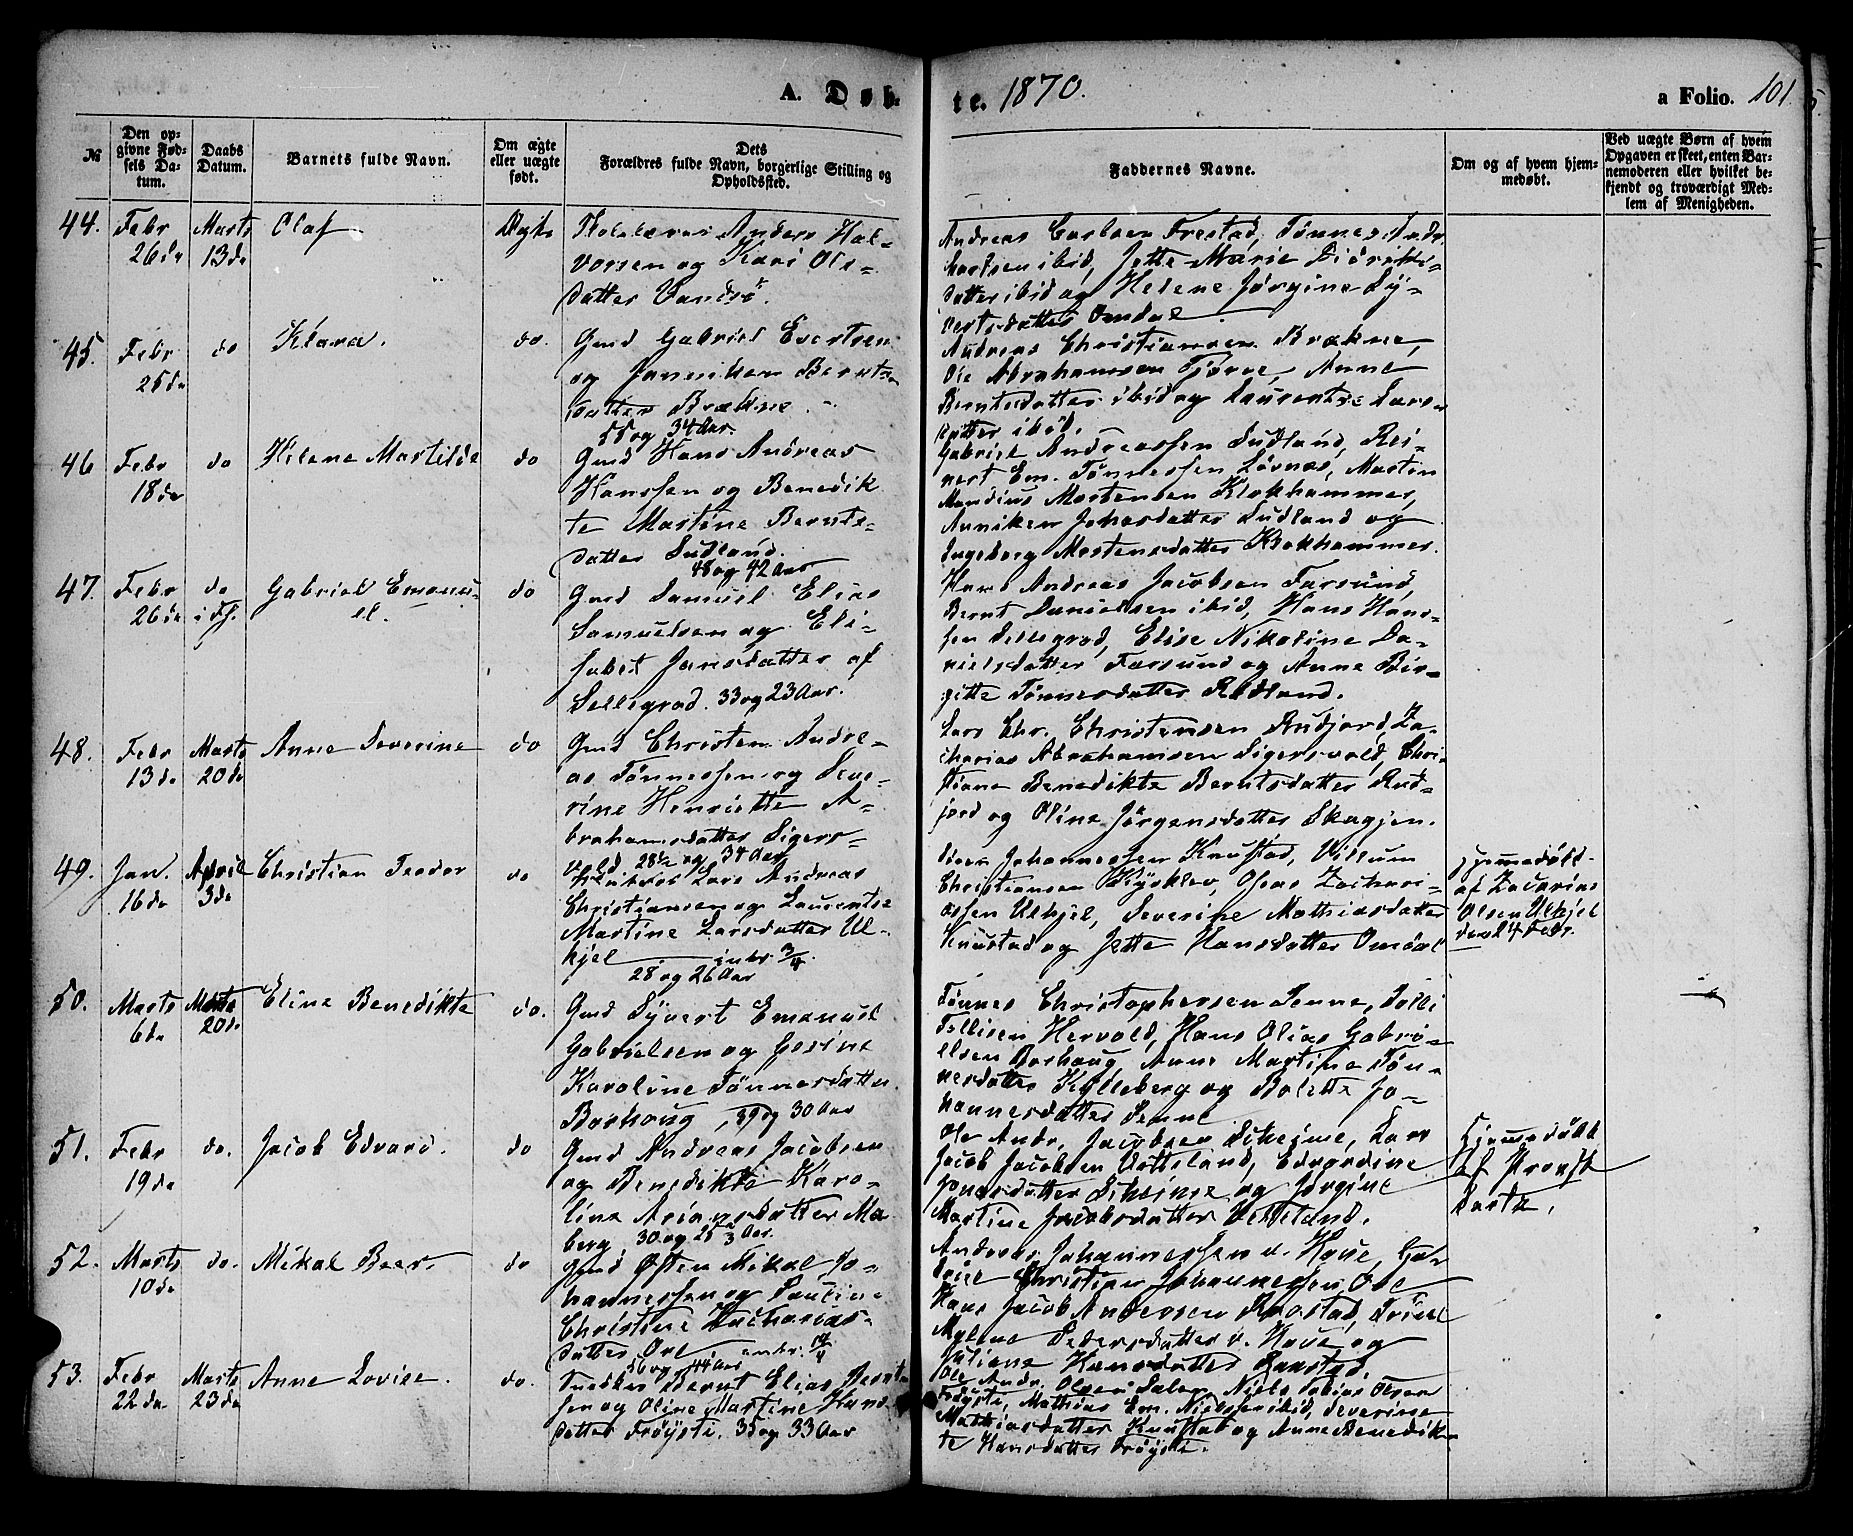 A. Døb-
te. 1870.
a Folio. 101.
№
Den op-
givne Fød-
sels Da-
tum.
Daabs
Datum.
Barnets fulde Navn.
Om ægte
eller uægte
født.
Dets
Forældres fulde Navn, borgerlige Stilling og
Opholdssted.
Faddernes Navne.
Om og af hvem hjem-
medøbt.
Ved uægte Børn af hvem
Opgaven er skeet, enten Bar-
nemoderen eller hvilket be-
kjendt og troværdigt Med-
lem af Menigheden.
44. Febr 26de
Marts 13de
Olaf
Ægte
Skolelærer Anders Hal-
vorsen og Kari Ols-
datter Vandsø.
Andreas Carlsen Frestad, Tønnes Andr.
ibid, Jette Marie Didrik-
datter ibid og Helene Jørgine Sy-
vertsdatter Omdal
45. Febr 25de
do
Klara.
do.
Gmd Gabriel Evertsen
og Janniken Bernts-
datter Brækne.
55 og 34 Aar.
Andreas Christiansen Brækne,
Ole Abrahamsen Tjørve, Anne
Berntsdatter ibid og Laurentse Lars-
datter ibid.
46 Febr 18de
do
Helene Martilde
do
Gmd Hans Andreas
Hanssen og Benedik
te Martine Bernts-
datter Sudland.
48 og 42 Aar
Gabriel Andreassen Sudland, Rei-
nert Em. Tønnessen Lørnes, Martin
Mandius Mortensen Klokhammer,
Anniken Johasdatter Sudland og
Ingeborg Mortensdatter Klokhammer.
47. Febr 26de
do i df.
Gabriel Emanu-
el.
do
Gmd Samuel Elias
Samuelsen og Eli-
sabet Jansdatter af
Sellegrod. 33 og 23 Aar.
Hans Andreas Jacobsen Farsund,
Bernt Danielsen ibid, Hans Hans-
sen Sellegrod, Elise Nikoline Da-
nielsdatter Farsund og Anne Bir-
gitte Tønnesdatter Rødland.
48. Febr 13de
Marts 20de
Anne Severine
do
Gmd Christen Andre-
as Tønnessen og Seve-
rine Henriette A-
brahamsdatter Sigers-
vold 28½ og 34 Aar
Lars Chr. Christensen Rudjord, Za-
charias Abrahamsen Sigersvold, Chri-
stiane Benedikte Berntsdatter Rud-
jord og Oline Jørgensdatter Skagjen.
49. Jan. 16de
April 3de
Christian Teodor
do
Lars Andreas
Christiansen og Laurentse
Martine Larsdatter Ul-
kjel intr. 3/4
28 og 26 Aar
Johannessen Knustad, Villum
Christiansen Kysklev, Oseas Zachari-
assen Ulkjel, Severine Mathiasdatter
Knustad og Jette Hansdatter Omdal
Hjemmedøbt
af Zacarias
Olsen Ulkjel
den 24 Febr.
50. Marts 6de
Marts 20de
Eline Benedikte
do.
Gmd Syvert Emanuel
Gabrielsen og Gesine
Karoline Tønnesdatter
Borhoug, 39 og 30 Aar
Tønnes Christophersen Penne, Tolli
Tollisen Hervold, Hans Olias Gabri-
elsen Borhoug, Anne Martine Tøn-
nesdatter Kylleberg og Bolette Jo-
hannesdatter Penne
51. Febr 19de
do.
Jacob Edvard.
do
Gmd Andreas Jacobsen
og Benedikte Karo-
line Asiansdatter Ma
berg, 30 og 25⅔ Aar.
Ole Andr. Jacobsen Skeime, Lars
Jacob Jacobsen Vetteland, Edvardine
Jonasdatter Skeime og Jørgine
Martine Jacobsdatter Vetteland.
Hjemmedøbt
af Provst
Darre.
52. Marts 10de
do.
Mikal Beer.
do
Gmd Osten Mikal Jo-
hannessen og Pauline
Christine Zacharias-
datter Ore, intr. 14/4
56 og 44 Aar
Andreas Johannessen v. Haue, Ga-
briel Christian Johannessen Ore
Hans Jacob Andersen Røgstad, Trine
Malene Pedersdatter v. Haue og
Juliane Hansdatter Røgstad.
53. Febr 22de
Marts 23de
Anne Lovise.
do.
Snedker Bernt Elias Bernt-
sen og Oline Martine Hans
datter Frøysti. 35 og 33 Aar
Ole Andr. Olsen Dalen, Niels Tobias Olsen
Frøysti, Mathias Em. Nielsen ibid, Severine
Mathiasdatter Knustad og Anne Benedik-
te Hansdatter Frøysti.